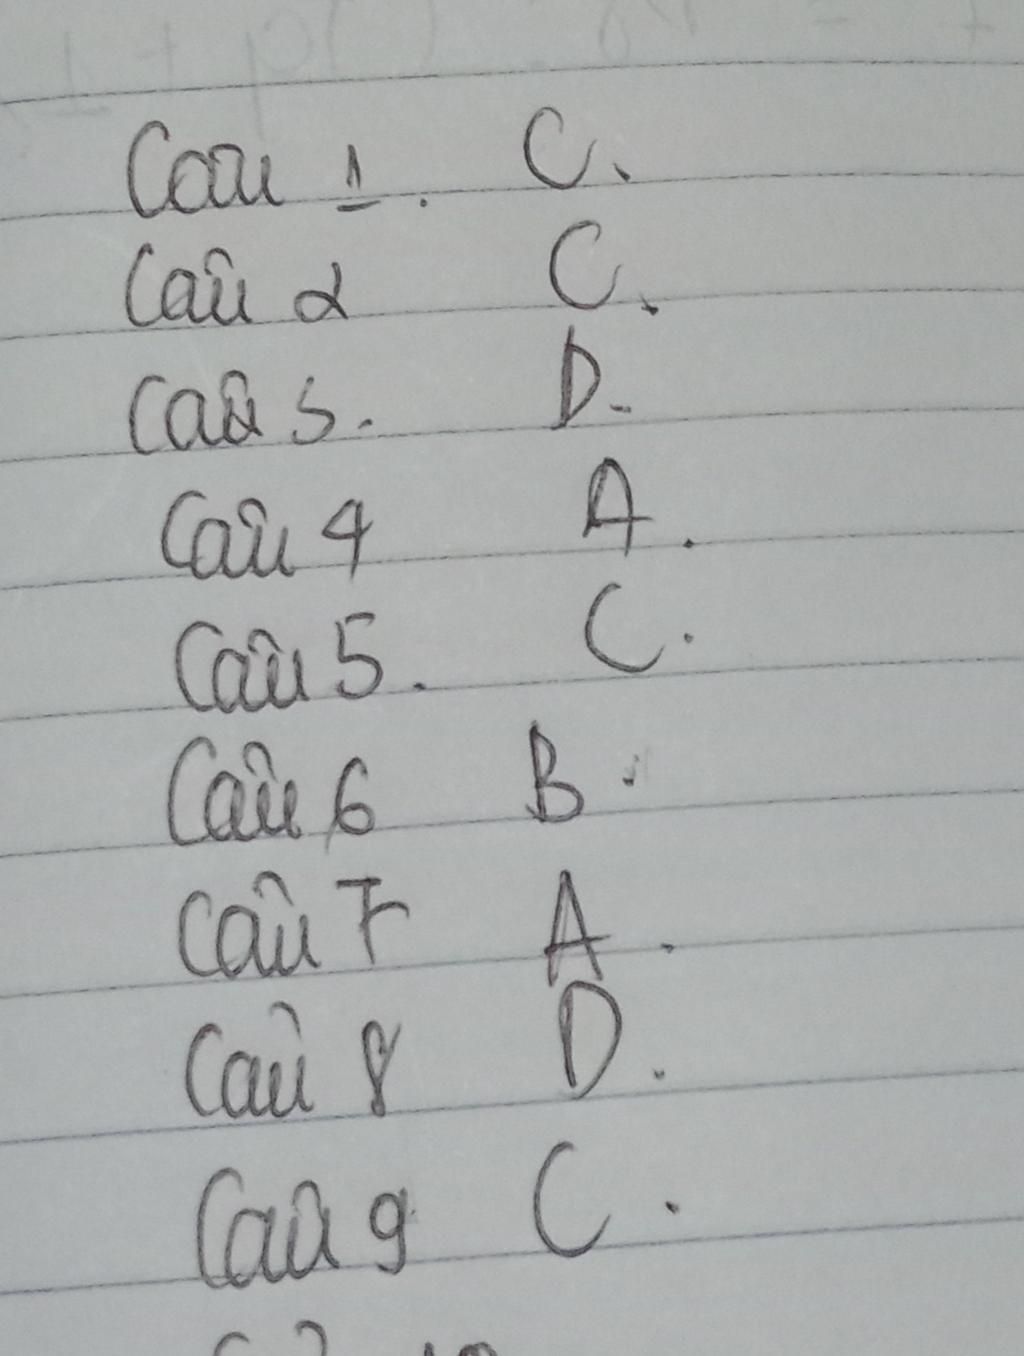 Câu 1. C.
Câu 2 C.
Câu 3. D.
Câu 4 A.
Câu 5. C.
Câu 6 B.
Câu 7 A.
Câu 8 D.
Câu 9 C.